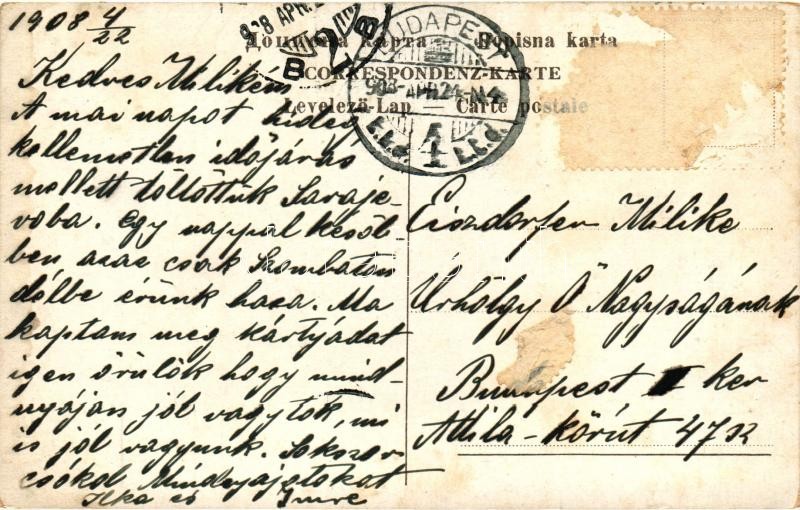 1908 4/22
908 APR.
B 2 B
BUDAPEST
908 APR 24 N4
1
Дописна карта — Dopisna karta
CORRESPONDENZ-KARTE
Levelező-Lap — Carte postale
Kedves Milikém
A mai napot hideg
kellemetlen időjárás
mellett töltöttük Saraje-
voba. Egy nappal késöb-
ben azaz csak Szombaton
délbe érünk haza. Ma
kaptam meg kártyádat
igen örülök hogy mind-
nyáján jól vagytok, mi
is jól vagyunk. Sokszor
csókol Mindnyájatokat
Ilka és Imre
Eiszdorfer Milike
Úrhölgy Ő Nagyságának
Budapest I ker
Attila-körút 47 sz